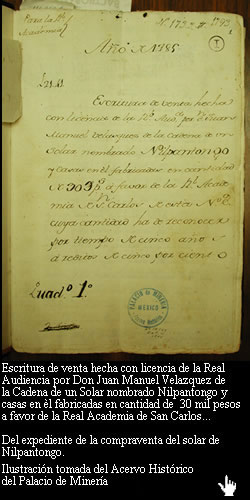 Para la Rl
Academia
N. 1732
Año de 1785
Escritura de venta hecha
con licencia de la Rl. Auda. por Dn Juan
Manuel Velazquez de la Cadena de un
Solar nombrado Nilpantongo
y casas en èl fabricadas en cantidad
de 30 mil ps. a favor de la Rl. Acade
mia de Sn. Carlos de esta Na. Ea.
cuya cantidad ha de reconocer
por tiempo de cinco años
a reditos de cinco por ciento
Quadno. 1º
PALACIO DE MINERIA
MEXICO
Escritura de venta hecha con licencia de la Real
Audiencia por Don Juan Manuel Velazquez de
la Cadena de un Solar nombrado Nilpantongo y
casas en èl fabricadas en cantidad de 30 mil pesos
a favor de la Real Academia de San Carlos...
Del expediente de la compraventa del solar de
Nilpantongo.
Ilustración tomada del Acervo Histórico
del Palacio de Minería